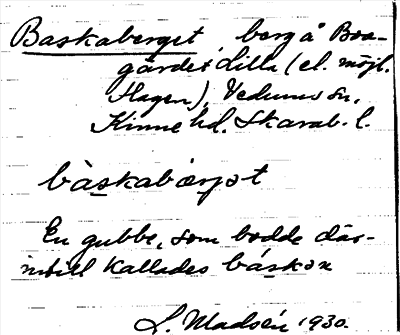 Baskaberget, berg å Boa-
gärdet Lilla (el. möjl.
Hagen), Vedums sn,
Kinne hd. Skarab. l.
bàskabærjət
En gubbe, som bodde där-
intill kallades báskən
L. Madsén 1930.